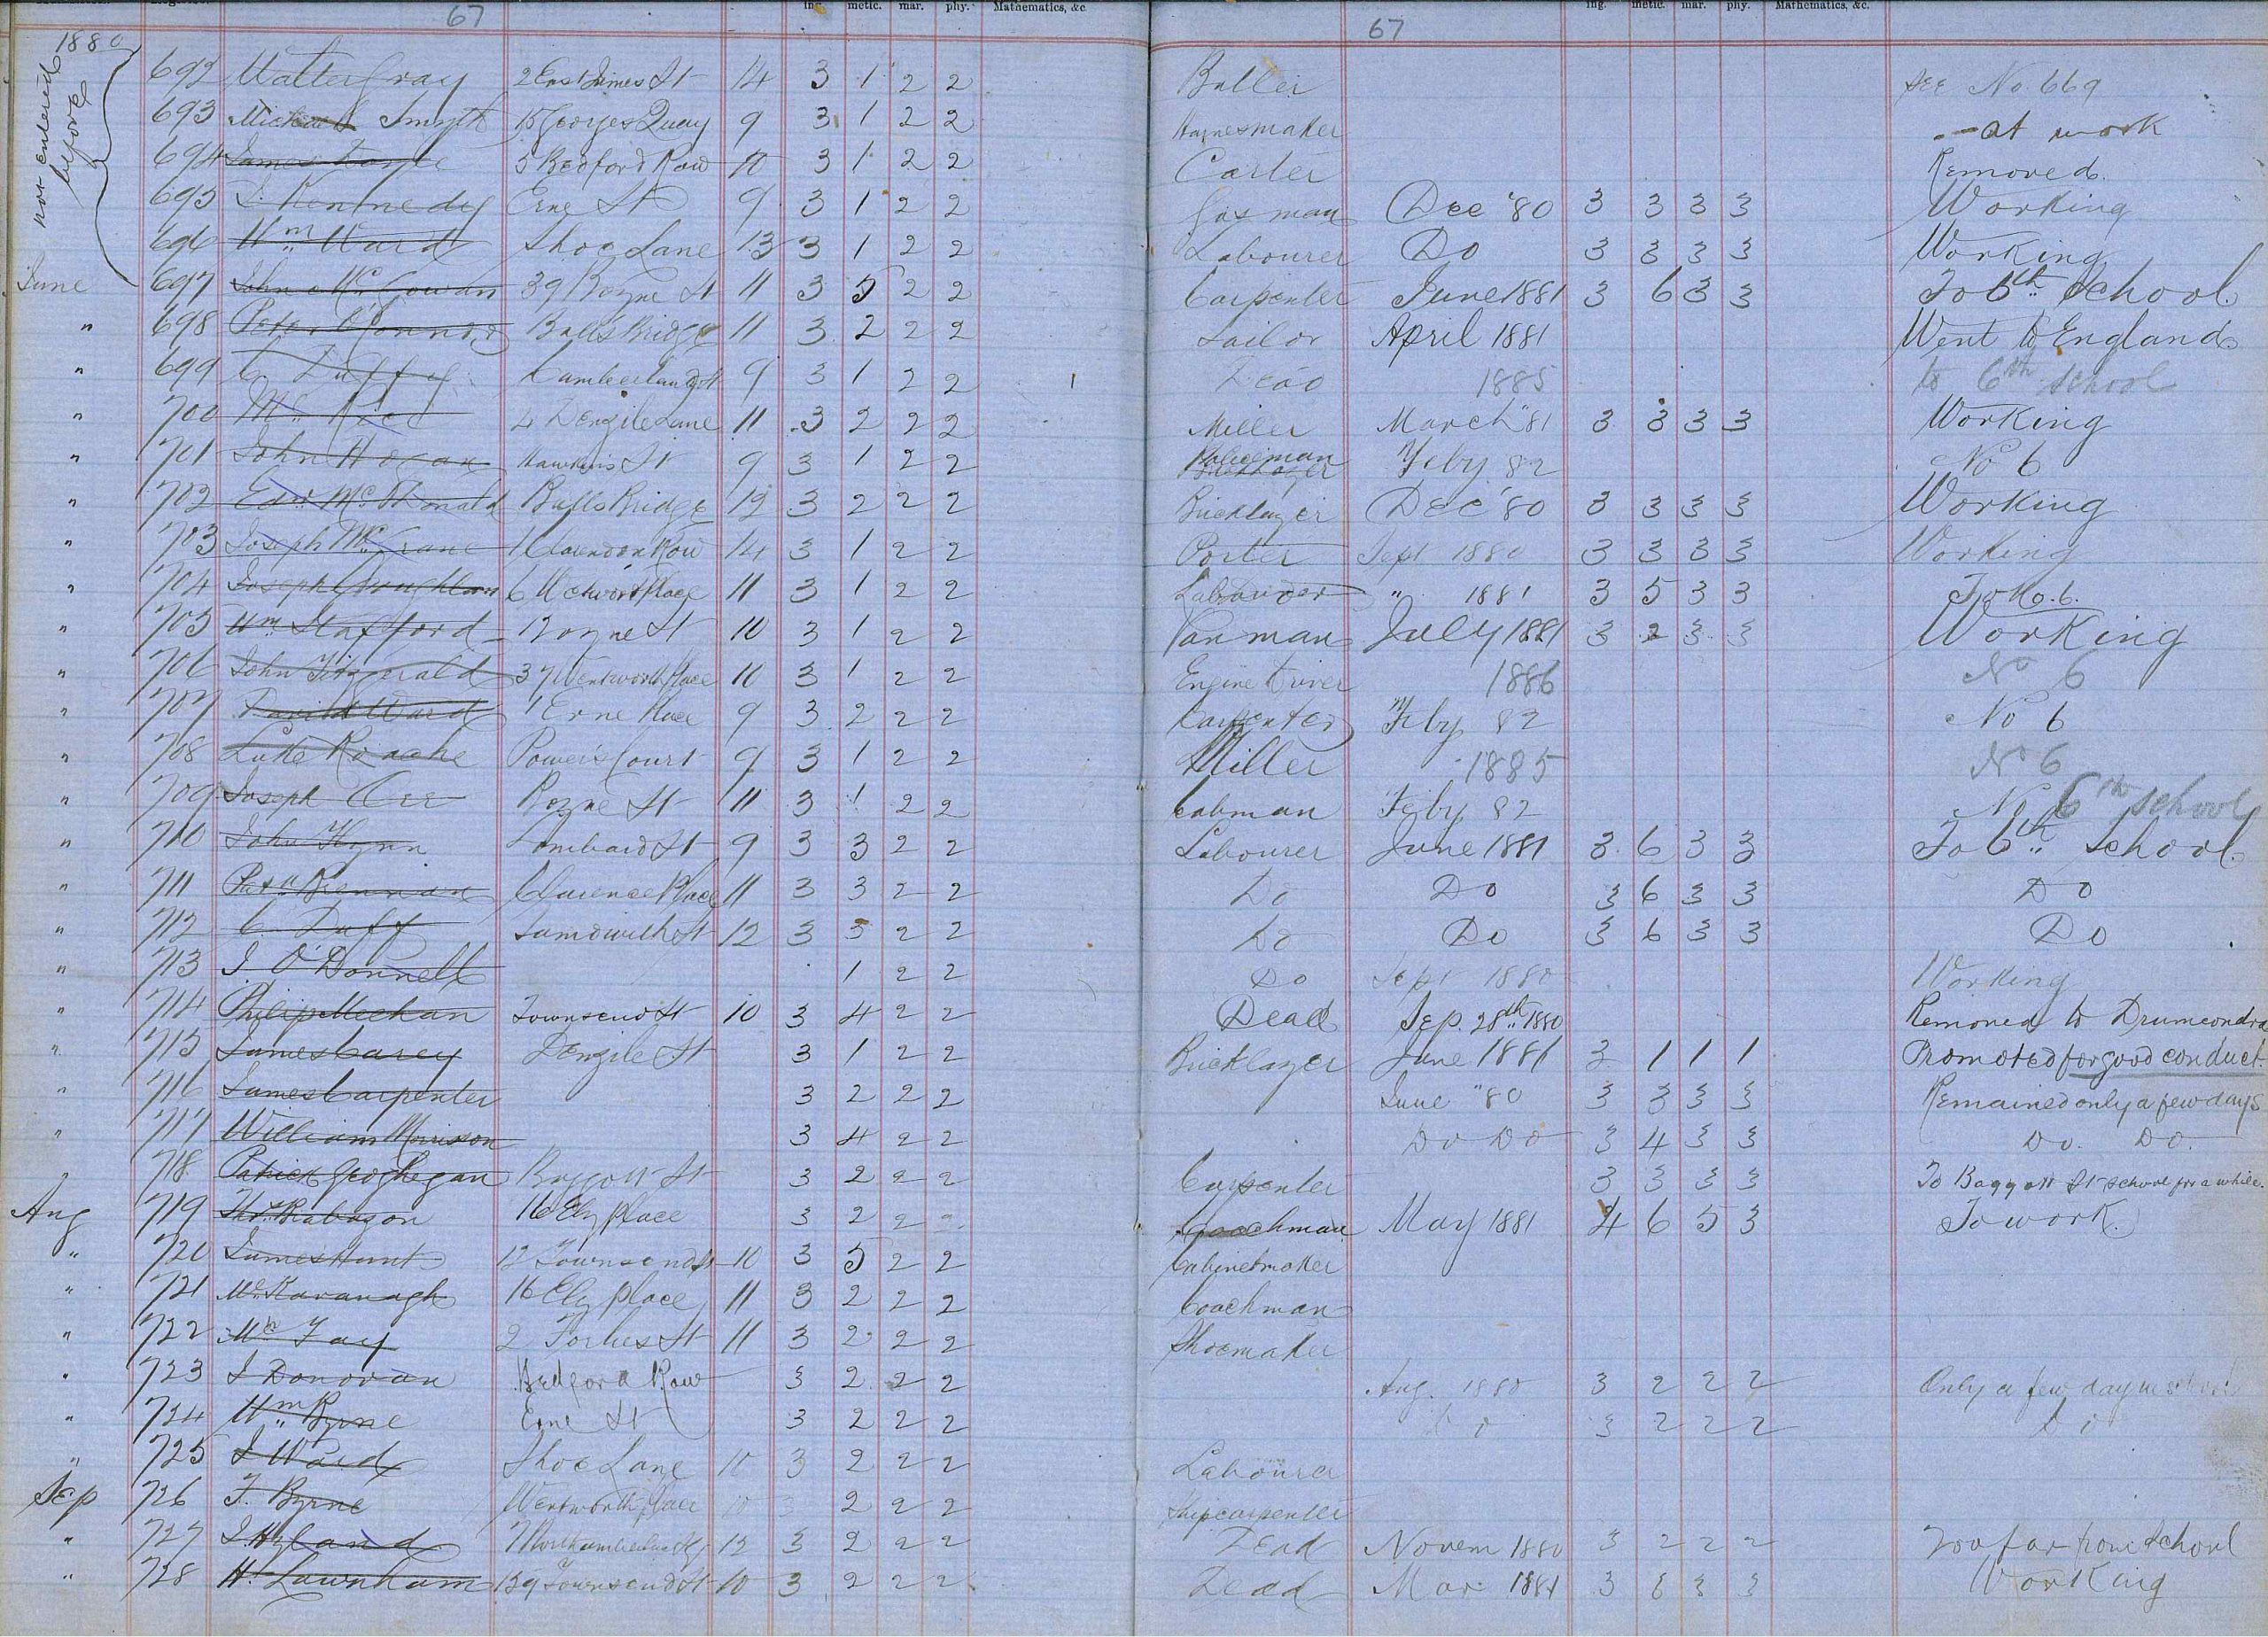 ing. metic. mar. phy. Mathematics, &c. ing. metic. mar. phy. Mathematics, &c.
67 67
1880
not entered before
692 Walter Gray 2 East James St 14 3 1 2 2 Butler see No. 669
693 Michael Smyth 15 Georges Quay 9 3 1 2 2 Harnesmaker at work
694 James 5 Bedford Row 10 3 1 2 2 Carter Removed.
695 J. Kennedy Erne St 9 3 1 2 2 Gasman Dec '80 3 3 3 3 Working
696 Wm Ward Shoe Lane 13 3 1 2 2 Labourer Do 3 3 3 3 Working
June 697 John McGowan 39 Boyne St 11 3 5 2 2 Carpenter June 1881 3 6 3 3 To 6th School
" 698 Peter O'Connor Balls Bridge 11 3 2 2 2 Sailor April 1881 Went to England
" 699 C. Duffy Cumberland St 9 3 1 2 2 Dead 1885 to 6th school
" 700 Denzile Lane 11 3 2 2 2 Miller March '81 3 3 3 3 Working
" 701 John Hogan Hawkins St 9 3 1 2 2 Policeman Feby 82 No 6
" 702 Edw. McDonald Balls Bridge 12 3 2 2 2 Bricklayer Dec '80 3 3 3 3 Working
" 703 Joseph McGrane 1 Clarendon Row 14 3 1 2 2 Porter Sept 1880 3 3 3 3 Working
" 704 Joseph 6 Place 11 3 1 2 2 Labourer " 1881 3 5 3 3 To No. 6.
" 705 Wm Stafford Boyne St 10 3 1 2 2 Van man July 1881 3 2 3 3 Working
" 706 John Fitzgerald 37 Wentworth Place 10 3 1 2 2 Engine Driver 1886 No 6
" 707 David Ward 1 Erne Place 9 3 2 2 2 Carpenter Feby 82 No 6
" 708 Luke Roache Power's Court 9 3 1 2 2 Miller 1885 No 6
" 709 Joseph Orr Boyne St 11 3 1 2 2 cabman Feby 82 No 6th school
" 710 John Flynn Lombard St 9 3 3 2 2 Labourer June 1881 3 6 3 3 To 6th School
" 711 Patk Brennan Clarence Place 11 3 3 2 2 Do Do 3 6 3 3 Do
" 712 C. Duff Sandwith St 12 3 5 2 2 Do Do 3 6 3 3 Do
" 713 J O'Donnell 1 2 2 Do Sept 1880 Working
" 714 Philip Meehan Townsend St 10 3 4 2 2 Dead Sep. 28th 1880 Removed to Drumcondra
" 715 James Carey Denzile St 3 1 2 2 Bricklayer June 1881 3 1 1 1 Promoted for good conduct.
" 716 James Carpenter 3 2 2 2 June "80 3 3 3 3 Remained only a few days
" 717 William Morrison 3 4 2 2 Do Do 3 4 3 3 Do. Do.
" 718 Patrick Geoghegan Baggott St 3 2 2 2 Carpenter 3 3 3 3 To Baggott St school for a while.
Aug 719 Thos. Brabazon 16 Ely place 3 2 2 Coachman May 1881 4 6 5 3 To work.
" 720 James Hunt 12 Townsend St 10 3 5 2 2 Cabinetmaker
" 721 Kavanagh 16 Ely place 11 3 2 2 2 Coachman
" 722 Fay 2 Forbes St 11 3 2 2 2 Shoemaker
" 723 J Donovan Bedford Row 3 2 2 2 Aug. 1880 3 2 2 2 Only a few days in school
" 724 Wm Byrne Erne St 3 2 2 2 Do 3 2 2 2 Do
" 725 J Ward Shoe Lane 10 3 2 2 2 Labourer
Sep 726 F. Byrne Wentworth place 2 2 2 Shipcarpenter
" 727 J. Hyland 12 3 2 2 2 Dead Novem 1880 3 2 2 2 Too far from School
" 728 H. Lawnham 139 Townsend St 10 3 2 2 2 Dead Mar. 1881 3 3 3 Working